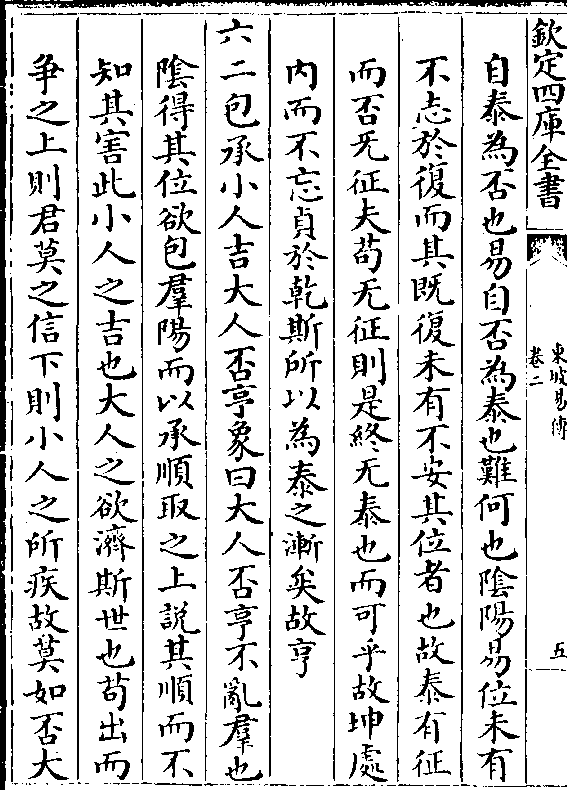 欽定四庫全書
東坡易傳
卷二
五
自泰為否也易自否為泰也難何也陰陽易位未有
不志於復而其既復未有不安其位者也故泰有征
而否旡征夫苟无征則是終无泰也而可乎故坤處
内而不忘貞於乾斯所以為泰之漸矣故亨
六二包承小人吉大人否亨象曰大人否亨不亂羣也
陰得其位欲包羣陽而以承順取之上說其順而不
知其害此小人之吉也大人之欲濟斯世也苟出而
争之上則君莫之信下則小人之所疾故莫如否大